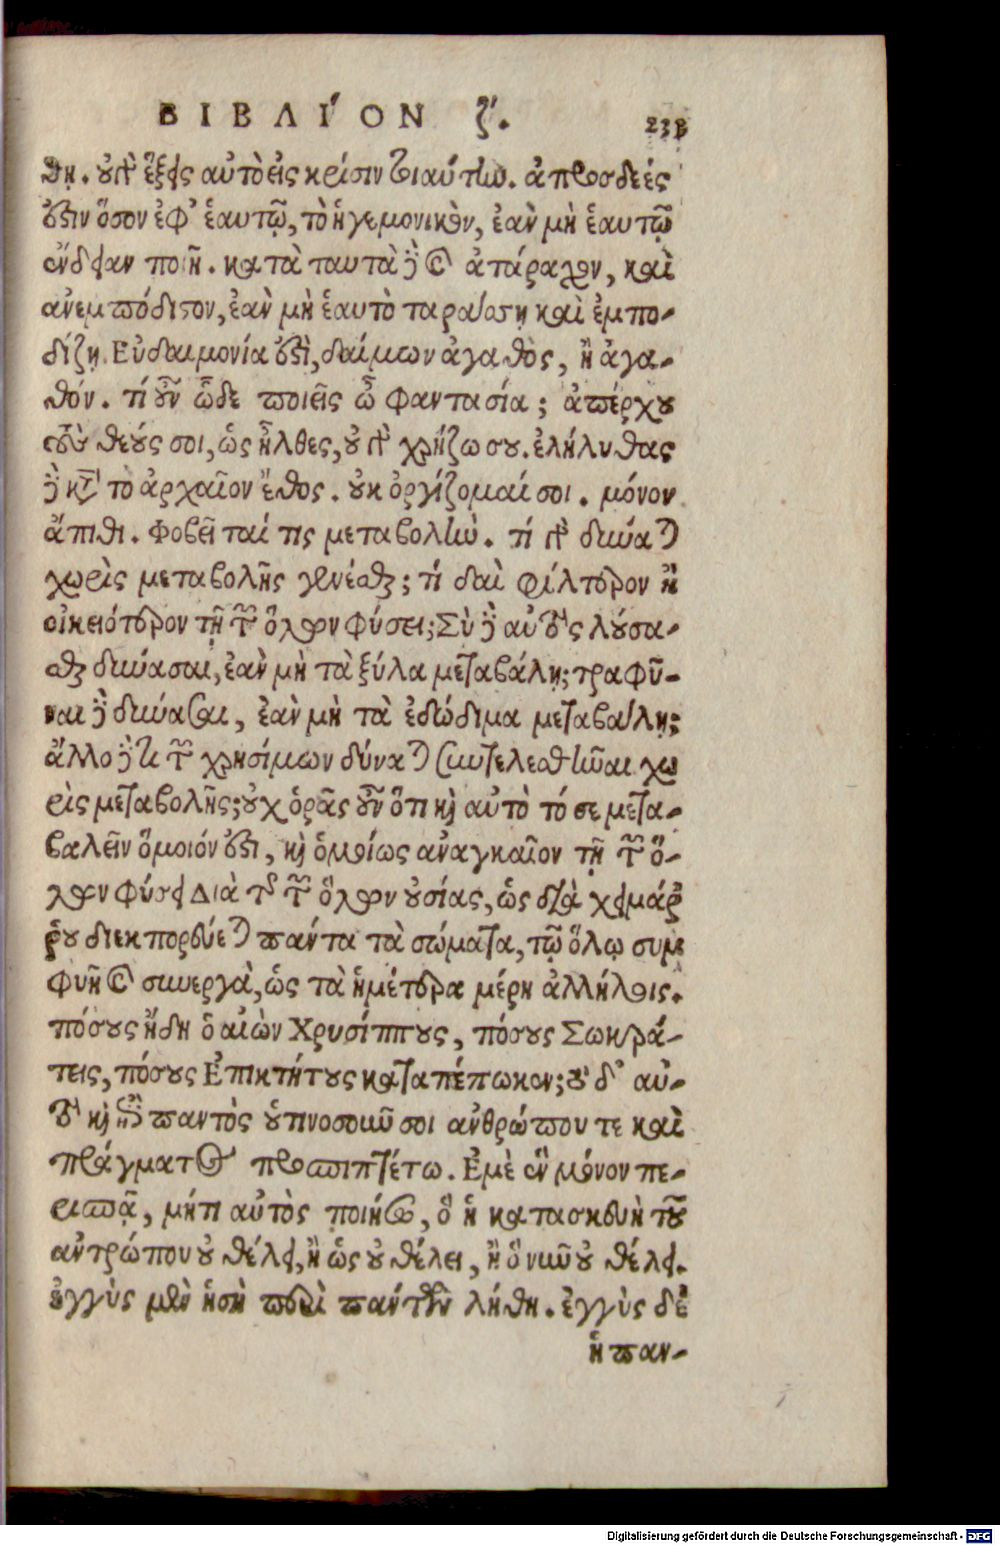 ΒΙΒΛΙ´ΟΝ ζ´.
θῃ. οὐδὲ ἕξεις αὐτὸ εἰς κρίσιν τοιαύτην. ἀπροσδεές
ἐστιν ὅσον ἐφ' ἑαυτῷ, τὸ ἡγεμονικὸν, ἐὰν μὴ ἑαυτῷ
ἔνδειαν ποιῇ. κατὰ ταυτὰ δὲ καὶ ἀτάραχον, καὶ
ἀνεμπόδιστον, ἐὰν μὴ ἑαυτὸ ταράσσῃ καὶ ἐμπο-
δίζῃ. Εὐδαιμονία ἐστὶ, δαίμων ἀγαθὸς, ἢ ἀγα-
θόν. τί οὖν ὧδε ποιεῖς ὦ φαντασία; ἀπέρχου
τοὺς θεούς σοι, ὡς ἦλθες, οὐ γὰρ χρῄζω σου. ἐλήλυθας
δὲ κατὰ τὸ ἀρχαῖον ἔθος. οὐκ ὀργίζομαί σοι. μόνον
ἄπιθι. Φοβεῖταί τις μεταβολήν. τί γὰρ δύναται
χωρὶς μεταβολῆς γενέσθαι; τί δαὶ φίλτερον ἢ
οἰκειότερον τῇ τῶν ὅλων φύσει; Σὺ δὲ αὐτὸς λούσα-
σθαι δύνασαι, ἐὰν μὴ τὰ ξύλα μεταβάλῃ; τραφῆ-
ναι δὲ δύνασαι, ἐὰν μὴ τὰ ἐδώδιμα μεταβάλῃ;
ἄλλο δέ τι τῶν χρησίμων δύναται συντελεσθῆναι χω
ρὶς μεταβολῆς; οὐχ ὁρᾷς οὖν ὅτι καὶ αὐτὸ τό σε μετα-
βαλεῖν ὅμοιόν ἐστι, καὶ ὁμοίως ἀναγκαῖον τῇ τῶν ὅ-
λων φύσει Διὰ τῆς τῶν ὅλων οὐσίας, ὡς διὰ χειμάρ
ρου διεκπορεύεται πάντα τὰ σώματα, τῷ ὅλῳ συμ
φυῆ καὶ συνεργὰ, ὡς τὰ ἡμέτερα μέρη ἀλλήλοις.
πόσους ἤδη ὁ αἰὼν Χρυσίππους, πόσους Σωκρά-
τεις, πόσους Ἐπικτήτους καταπέπωκεν; τὸ δ' αὐ-
τὸ καὶ ἐπὶ παντὸς οὑτινοσοιοῦν σοι ἀνθρώπου τε καὶ
πράγματος προσπιπτέτω. Ἐμὲ ἓν μόνον πε-
ρισπᾷ, μήτι αὐτὸς ποιήσω, ὃ ἡ κατασκευὴ τοῦ
ἀντρώπου οὐ θέλει, ἢ ὡς οὐ θέλει, ἢ ὃ νῦν οὐ θέλει.
ἐγγὺς μὲν ἡ σὴ περὶ πάντων λήθη. ἐγγὺς δὲ
ἡ παν-
Digitalisierung gefördert durch die Deutsche Forschungsgemeinschaft - DFG